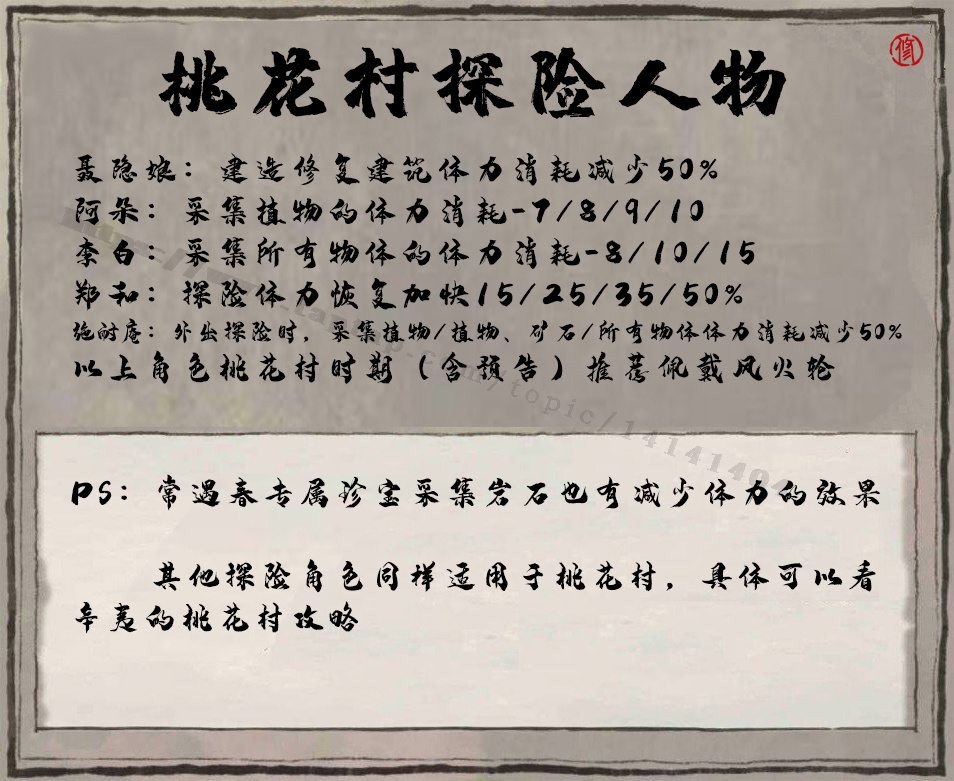 桃花村探险人物
修
聂隐娘：建造修复建筑体力消耗减少50%
阿朵：采集植物的体力消耗-7/8/9/10
李白：采集所有物体的体力消耗-8/10/15
郑和：探险体力恢复加快15/25/35/50%
施耐庵：外出探险时，采集植物/植物、矿石/所有物体体力消耗减少50%
以上角色桃花村时期（含预告）推荐佩戴风火轮
topic/1414140
PS：常遇春专属珍宝采集岩石也有减少体力的效果
其他探险角色同样适用于桃花村，具体可以看
辛夷的桃花村攻略